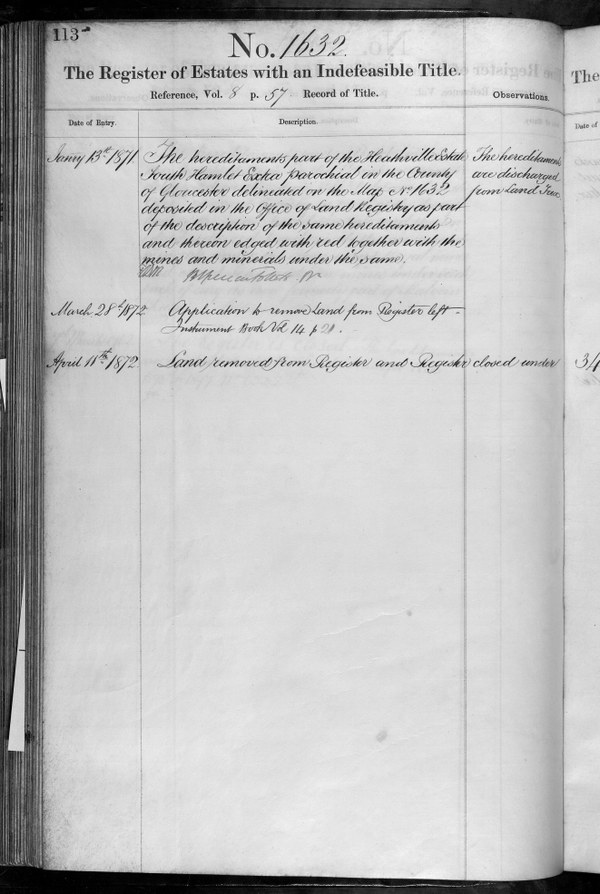 113
No. 1632.
The Register of Estates with an Indefeasible Title.
Reference, Vol. 8 p. 57 Record of Title.
Observations.
Date of Entry.
Description.
Janry 13th 1871
The hereditaments part of the Heathville Estate
South Hamlet Extra Parochial in the County
of Gloucester delineated on the Map No. 1632
deposited in the Office of Land Registry as part
of the description of the same hereditaments
and thereon edged with red together with the
mines and minerals under the same.
The hereditaments
are discharged
from Land Tax
March 28th 1872
Application to remove Land from Register left –
Instrument Book Vol 14 p 20.
April 11th 1872
Land removed from Register and Register closed under
34
The
Date of